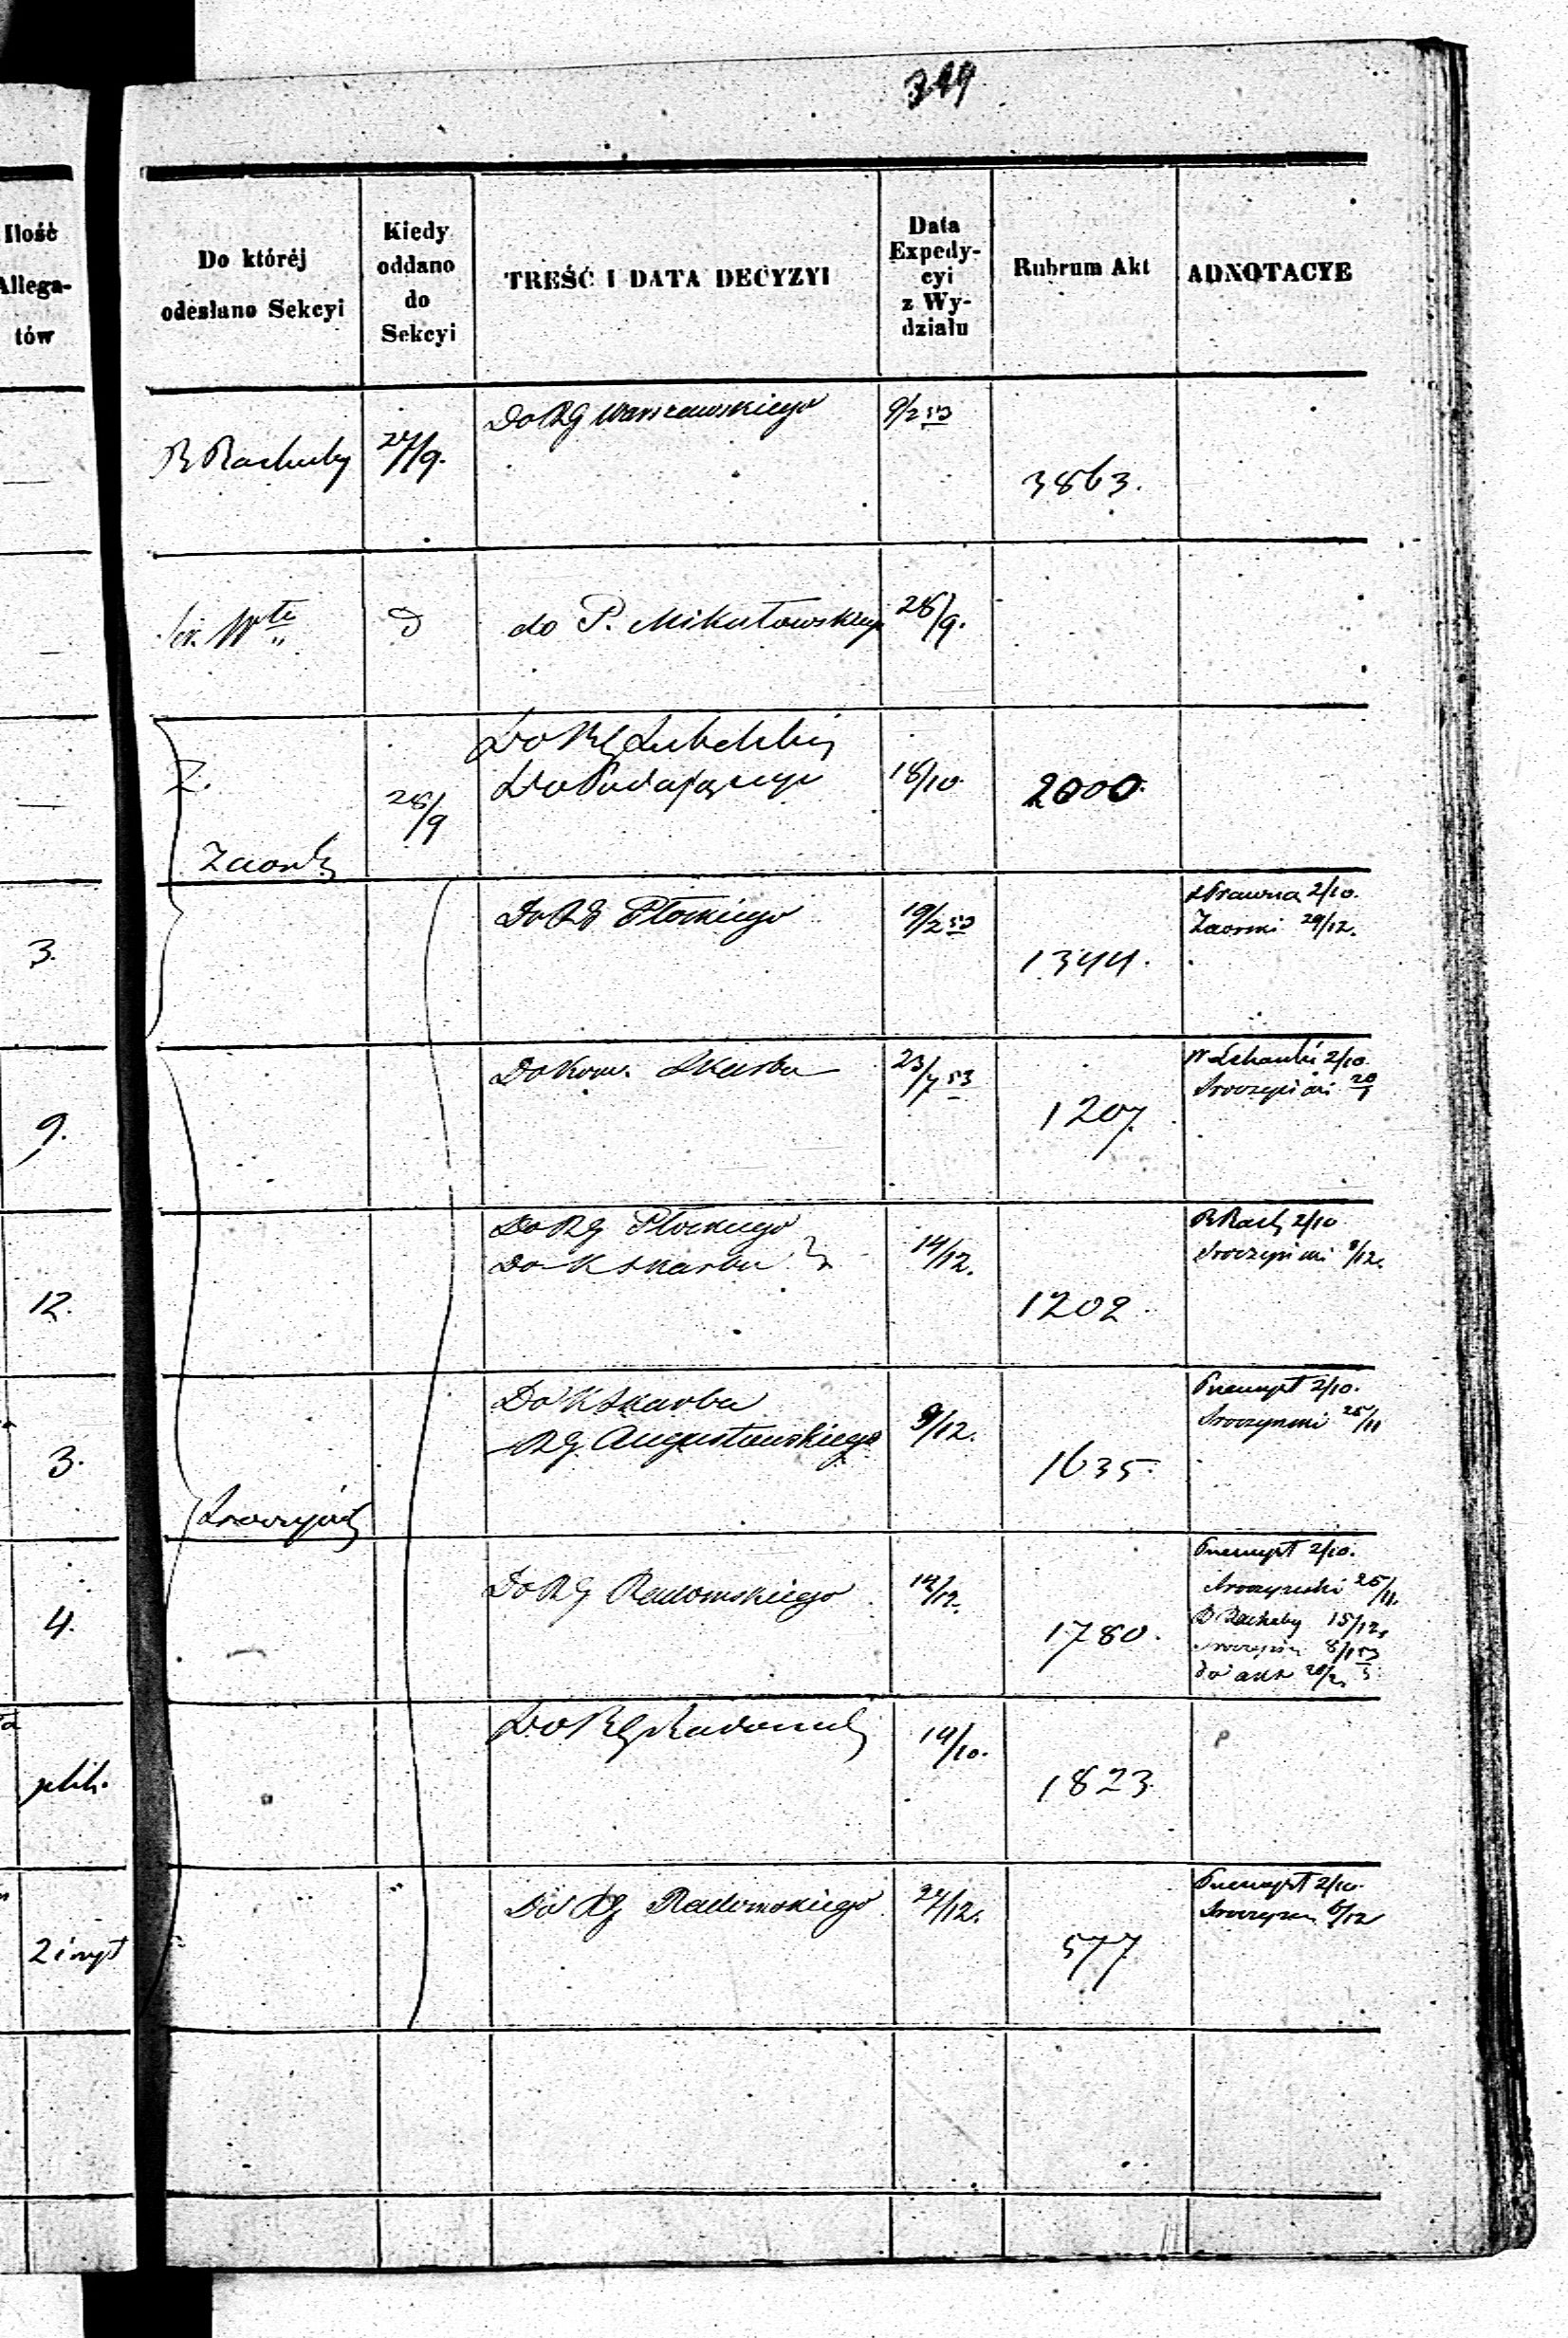 349
Ilość
Allega-
tów
Do któréj
odesłano Sekcyi
Kiedy
oddano
do
Sekcyi
TREŚĆ I DATA DECYZYI
Data
Expedy-
cyi
z Wy-
działu
Rubrum Akt
ADNOTACYE
R Rachuby
27/9.
Do RG Warszawskiego
9/2 53
3863.
do P. Mikułowskiego
28/9.
Z.
Zaorski
28/9
Do RG Lubelskiej
Do Podającego
18/10
2000.
3.
Do RG Płockiego
19/2 53
1344.
Prawna 2/10.
Zaorski 29/12.
9.
Do Kom. Skarbu
23/7 53
1207.
2/10.
Sroczyński
12.
Do RG Płockiego
Do K Skarbu
14/12.
1202.
R Rach 2/10
Sroczyński 9/12.
3.
Sroczyński
Do K Skarbu
RG Augustowskiego
9/12.
1635.
2/10.
Sroczyński 25/11
4.
Do RG Radomskiego
14/12.
1780.
2/10.
Sroczyński 25/11.
R Rachuby 15/12,
Sroczyński 8/1 53
do akt
plik.
Do RG Radomsk
14/10.
1823.
2 i
Do RG Radomskiego
27/12.
577
2/10.
Sroczyn 6/12